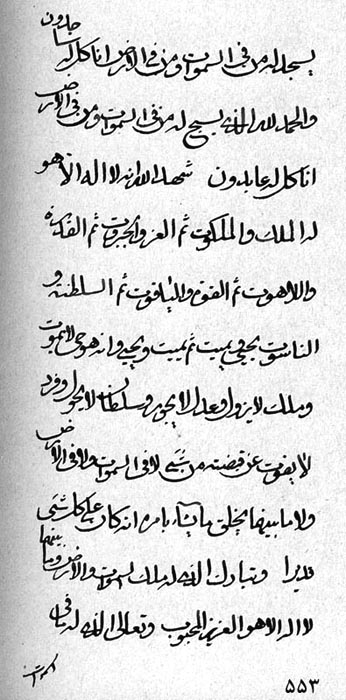 يسجد له من في السموات ومن في الارض انا كل له ساجدون
والحمد لله الذي يسبح له من في السموات ومن في الارض
انا كل له عابدون شهد الله انه لا اله الا هو
له الملك والملكوت ثم العز والجبروت ثم القدرة
واللاهوت ثم القوة والياقوت ثم السلطنة و
الناسوت يحيي ويميت ثم يميت ويحيي وانه هو حي لا يموت
وملك لا يزول وعدل لا يجور وسلطان لا يحول وفرد
لا يفوت عن قبضته من شيء لا في السموات ولا في الارض
ولا ما بينهما يخلق ما يشاء بامره انه كان على كل شيء
قديرا وتبارك الذي له ملك السموات والارض وما بينهما
لا اله الا هو العزيز المحبوب وتعالى الذي له ما في
السموات
٥٥٣